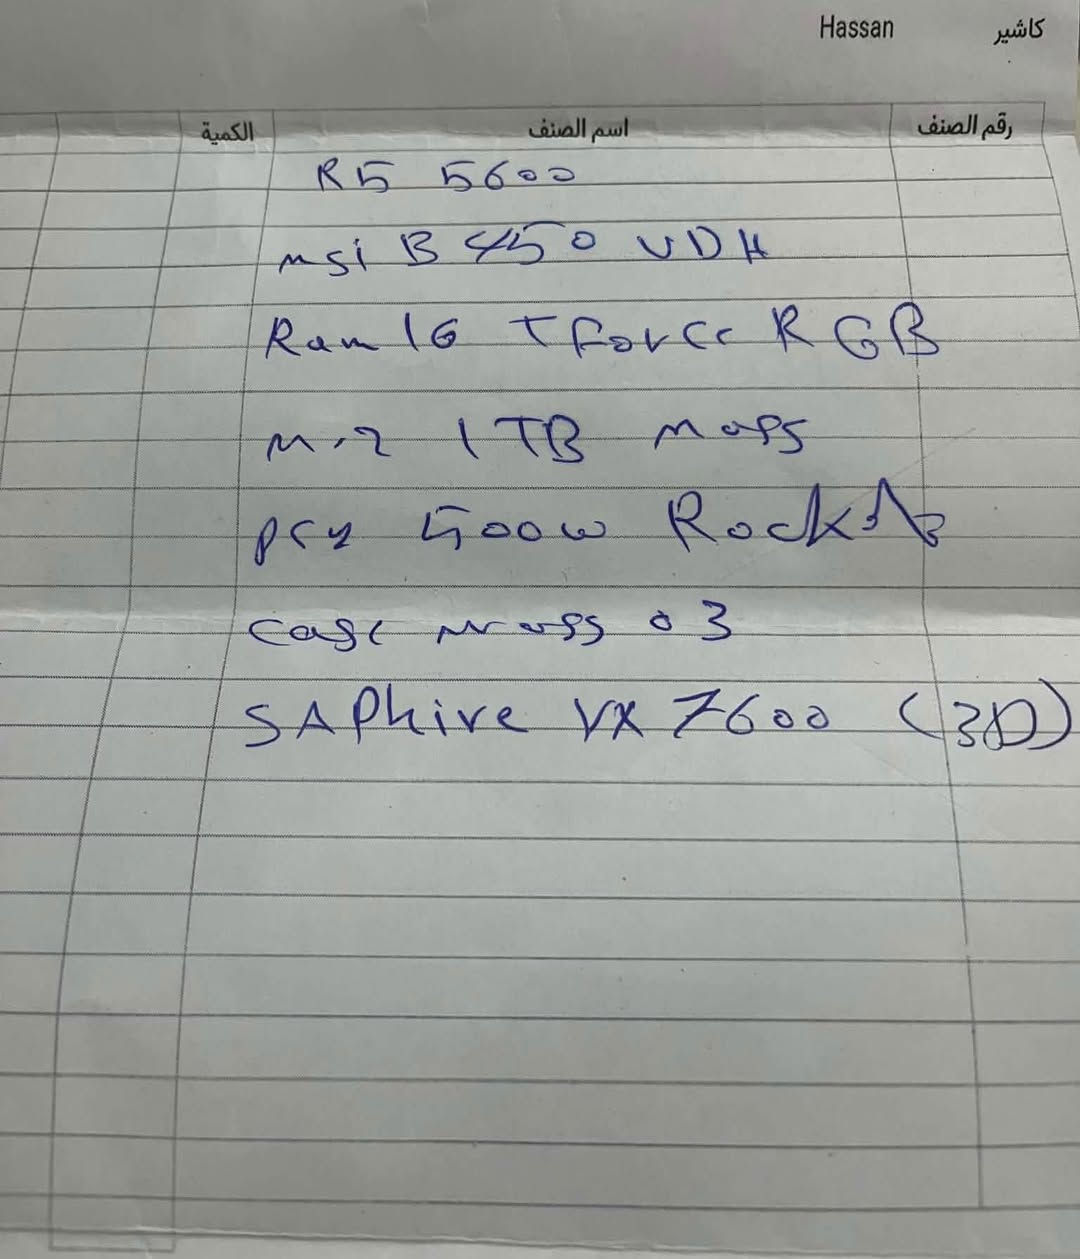 كاشير Hassan
رقم الصنف اسم الصنف الكمية
R5 5600
msi B 450 VDH
Ram 16 TForce RGB
M.2 1TB
PSU 500w Rock
Case 03
SAPhire VX 7600 (3D)